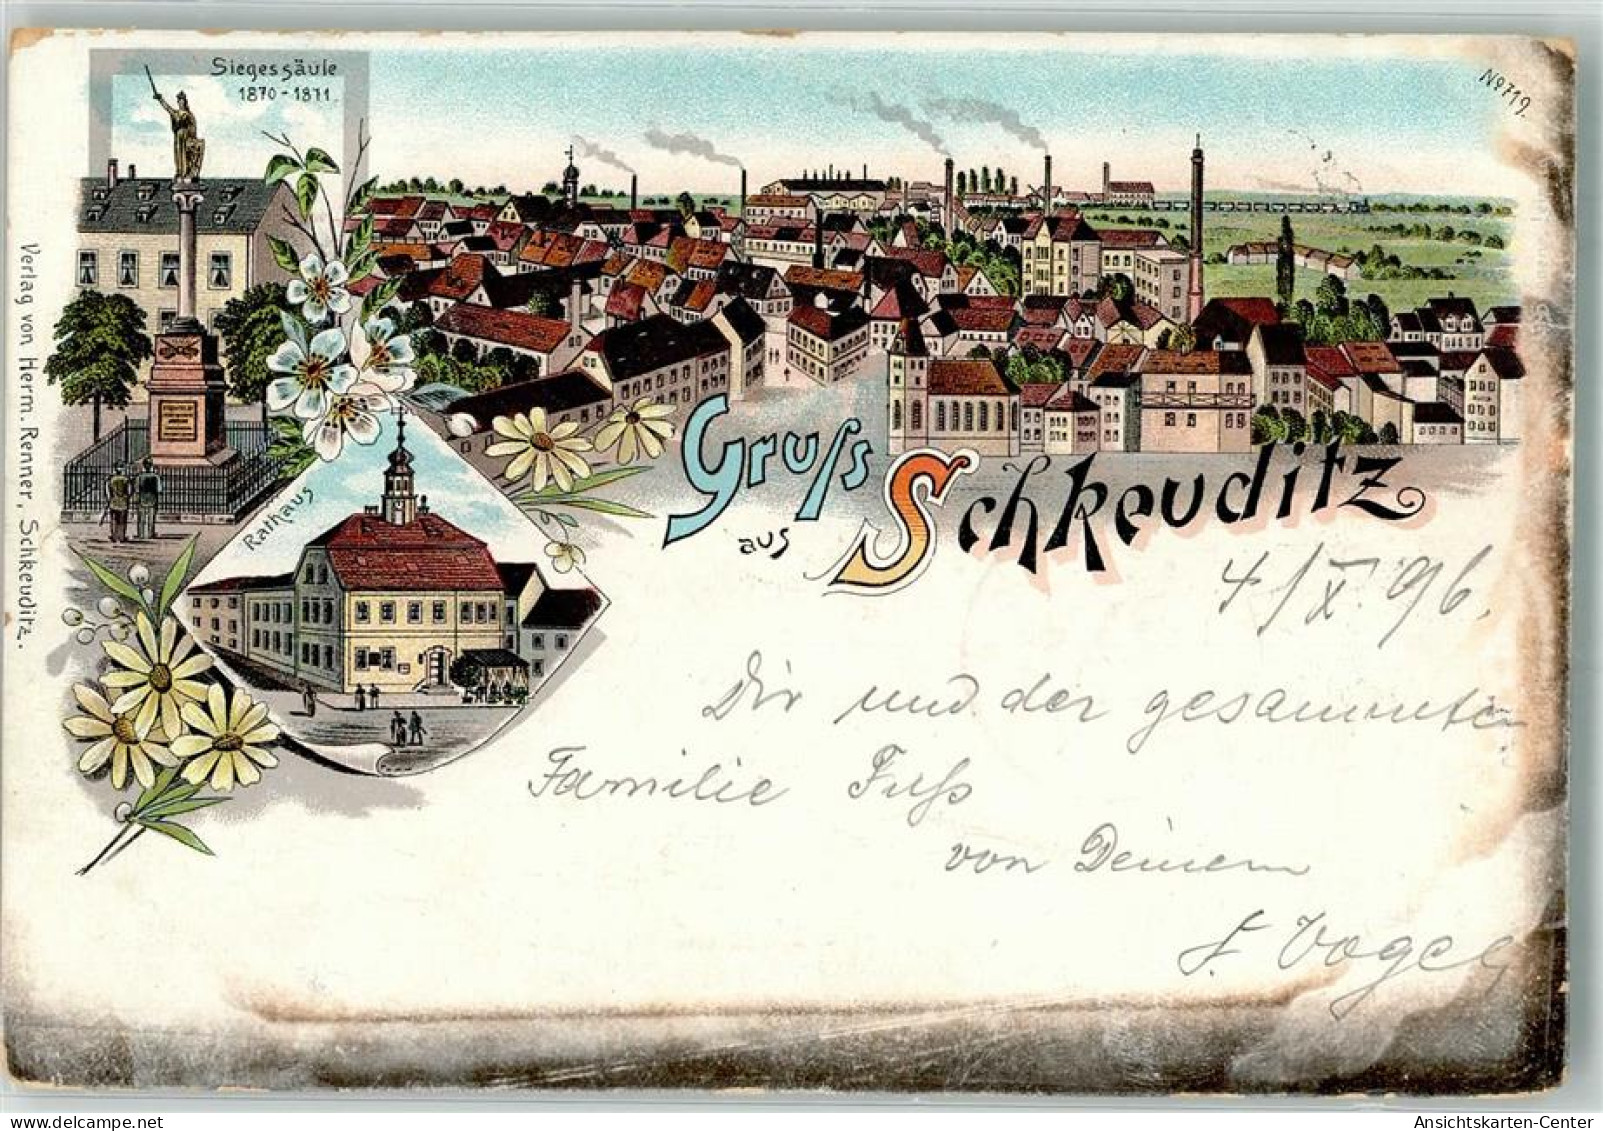 Siegessäule
1870-1871.
No 719.
Verlag von Herm. Renner, Schkeuditz.
Gruss
aus
Schkeuditz
Rathaus
4/X. 96.
Dir und der gesammten
Familie Fuß
von Deinem
F. Vogel
Ansichtskarten-Center